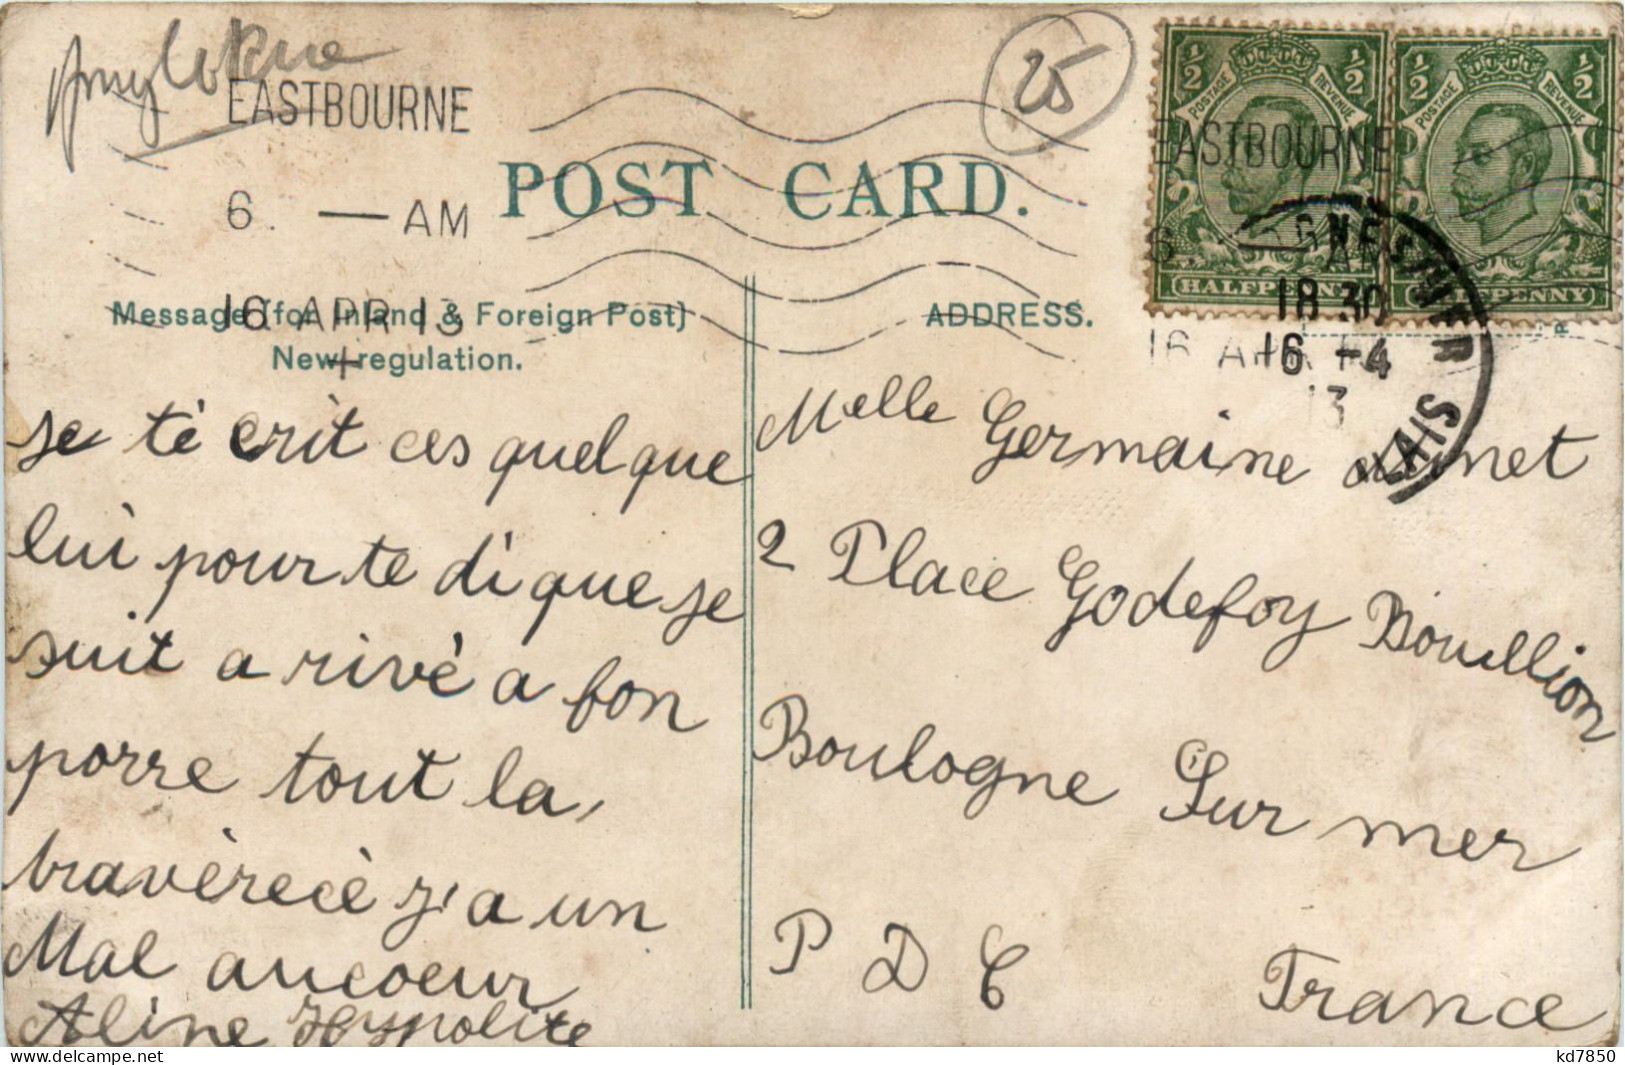 EASTBOURNE
25
½ ½ ½ ½
POSTAGE REVENUE POSTAGE REVENUE
EASTBOURNE
6. — AM
POST CARD.
6.
HALFPENNY HALFPENNY
18 30
16 APR 13
16 -4
13
Message (for Inland & Foreign Post)
New regulation.
ADDRESS.
se té crit ces quelque
lui pour te di que se
suit a rivé a bon
porre tout la
travèrecè j'a un
Mal aucoeur
Aline Hyppolite
Melle Germaine
2 Place Godefoy Bouillion
Boulogne Sur mer
P D C
France
kd7850